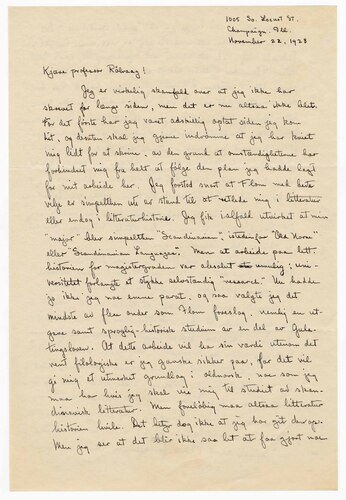 1005 So. Locust St.
Champaign, Ill.
November 22, 1928
Kjære professor Rölvaag!
Jeg er virkelig skamfuld over at jeg ikke har
skrevet for længe siden, men det er nu altsaa ikke
For det første har jeg været adskillig optat siden jeg kom
hit, og desuten skal jeg gjerne indrømme at jeg har kviet
mig litt for at skrive, av den grund at omstændighetene har
forhindret mig fra helt at følge den plan jeg hadde lagt
for mit arbeide her. Jeg forstod snart at Flom med beste
vilje er simpelthen ute av stand til at veilede mig i litteratur
eller endog i litteraturhistorie. Jeg fik isalfald utvirket at min
"major" blev simpelthen "Scandinavian", istedenfor "Old Norse"
eller "Scandinavian Languages". Men at arbeide paa litt.
historien for magistergraden var absolut umulig; uni-
versitetet forlangte et stykke selvstændig "research." Nu hadde
jo ikke jeg noe emne parat, og saa valgte jeg det
mindste av flere onder som Flom foreslog, nemlig en ut-
gave samt sproglig-historisk studium av en del av Gula-
tingsloven. At dette arbeide vil ha sin værdi utenom det
rent filologiske er jeg ganske sikker paa, for det vil
gi mig et utmerket grundlag i oldnorsk, noe som jeg
maa ha hvis jeg skal vie mig til studiet av skan-
dinavisk litteratur. Men foreløbig maa altsaa litteratur
historien hvile. Det betyr dog ikke at jeg har git den op.
Men jeg ser at det blir ikke saa let at faa gjort noe